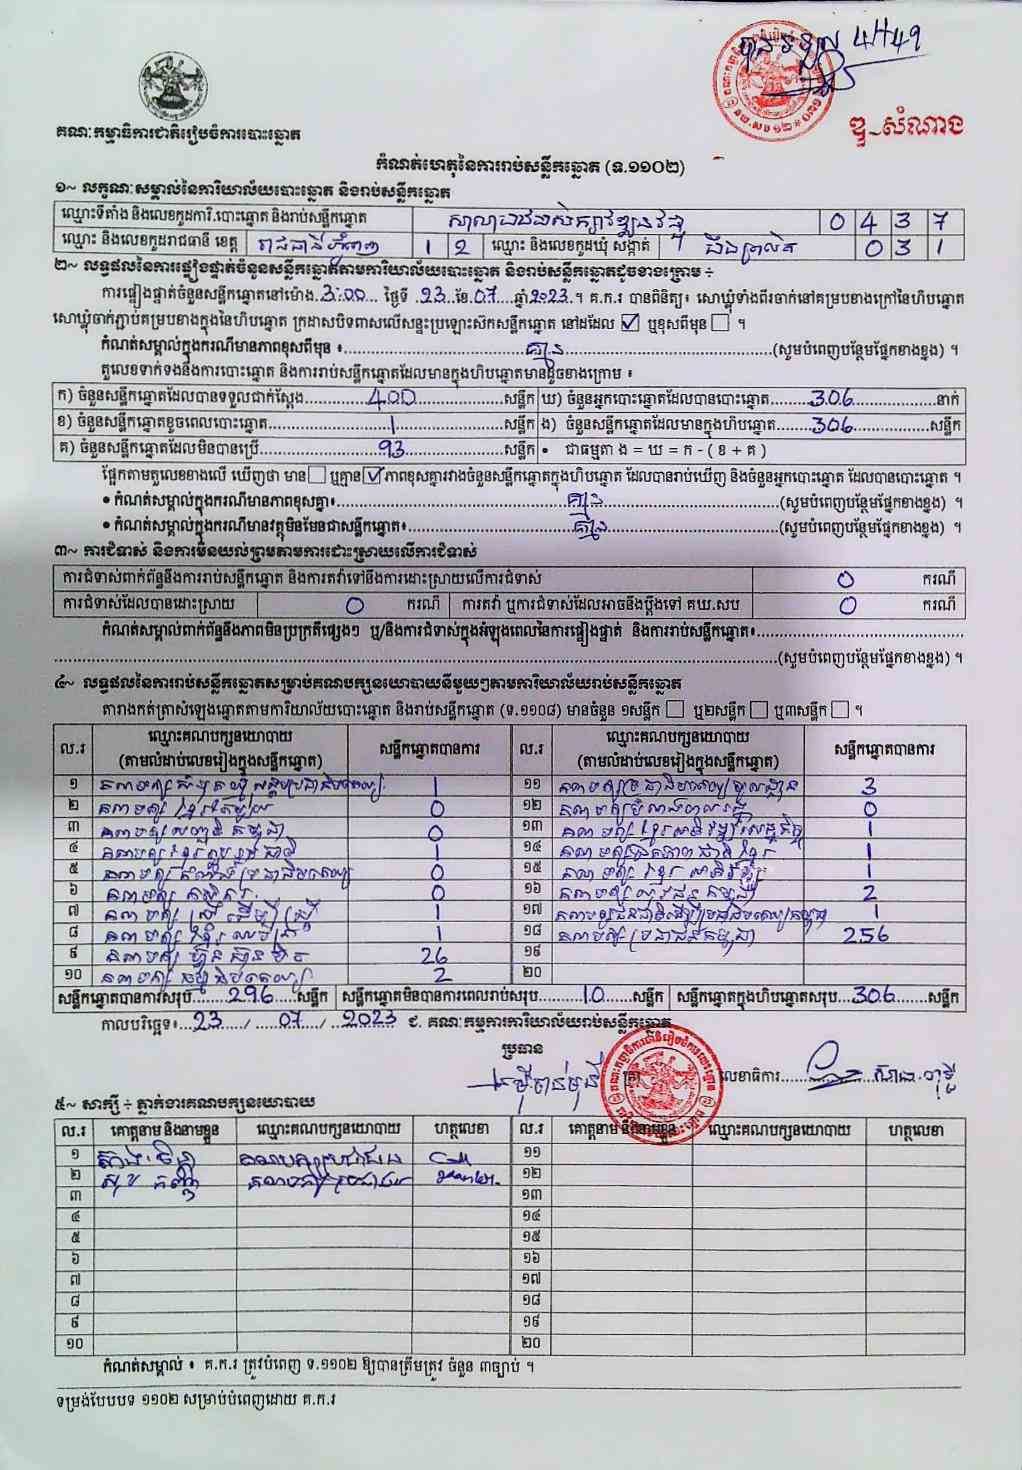 បានទទួល ៤H49
ឌួ~សំណាង
គណៈកម្មាធិការជាតិរៀបចំការបោះឆ្នោត
កំណត់ហេតុនៃការរាប់សន្លឹកឆ្នោត (ទ.១១០២)
១~ លក្ខណៈសម្គាល់នៃការិយាល័យបោះឆ្នោត និងរាប់សន្លឹកឆ្នោត
ឈ្មោះទីតាំង និងលេខកូដការិ.បោះឆ្នោត និងរាប់សន្លឹកឆ្នោត 0 4 3 7
ឈ្មោះ និងលេខកូដរាជធានី ខេត្ត រាជធានីភ្នំពេញ 1 2 ឈ្មោះ និងលេខកូដឃុំ សង្កាត់ 0 3 1
២~ លទ្ធផលនៃការផ្ទៀងផ្ទាត់ចំនួនសន្លឹកឆ្នោតតាមការិយាល័យបោះឆ្នោត និងរាប់សន្លឹកឆ្នោតដូចខាងក្រោម ÷
ការផ្ទៀងផ្ទាត់ចំនួនសន្លឹកឆ្នោតនៅម៉ោង.3:00... ថ្ងៃទី .23..ខែ.07....ឆ្នាំ2023.។ គ.ក.រ បានពិនិត្យ៖ សោឃ្លុំទាំងពីរចាក់នៅគម្របខាងក្រៅនៃហិបឆ្នោត
សោឃ្លុំចាក់ភ្ជាប់គម្របខាងក្នុងនៃហិបឆ្នោត ក្រដាសបិទពាសលើសន្ទះប្រឡោះស៊កសន្លឹកឆ្នោត នៅដដែល ☑ ឬខុសពីមុន ☐ ។
កំណត់សម្គាល់ក្នុងករណីមានភាពខុសពីមុន ៖ គ្មាន (សូមបំពេញបន្ថែមផ្នែកខាងខ្នង) ។
តួលេខទាក់ទងនឹងការបោះឆ្នោត និងការរាប់សន្លឹកឆ្នោតដែលមានក្នុងហិបឆ្នោតមានដូចខាងក្រោម ៖
ក) ចំនួនសន្លឹកឆ្នោតដែលបានទទួលជាក់ស្ដែង 400 សន្លឹក ឃ) ចំនួនអ្នកបោះឆ្នោតដែលបានបោះឆ្នោត 306 នាក់
ខ) ចំនួនសន្លឹកឆ្នោតខូចពេលបោះឆ្នោត 1 សន្លឹក ង) ចំនួនសន្លឹកឆ្នោតដែលមានក្នុងហិបឆ្នោត 306 សន្លឹក
គ) ចំនួនសន្លឹកឆ្នោតដែលមិនបានប្រើ 93 សន្លឹក • ជាធម្មតា ង = ឃ = ក - ( ខ + គ )
ផ្អែកតាមតួលេខខាងលើ ឃើញថា មាន ☐ ឬគ្មាន ☑ ភាពខុសគ្នារវាងចំនួនសន្លឹកឆ្នោតក្នុងហិបឆ្នោត ដែលបានរាប់ឃើញ និងចំនួនអ្នកបោះឆ្នោត ដែលបានបោះឆ្នោត ។
• កំណត់សម្គាល់ក្នុងករណីមានភាពខុសគ្នា៖ គ្មាន (សូមបំពេញបន្ថែមផ្នែកខាងខ្នង) ។
• កំណត់សម្គាល់ក្នុងករណីមានវត្ថុមិនមែនជាសន្លឹកឆ្នោត៖ គ្មាន (សូមបំពេញបន្ថែមផ្នែកខាងខ្នង) ។
៣~ ការជំទាស់ និងការមិនយល់ព្រមតាមការដោះស្រាយលើការជំទាស់
ការជំទាស់ពាក់ព័ន្ធនឹងការរាប់សន្លឹកឆ្នោត និងការតវ៉ាទៅនឹងការដោះស្រាយលើការជំទាស់ 0 ករណី
ការជំទាស់ដែលបានដោះស្រាយ 0 ករណី ការតវ៉ា ឬការជំទាស់ដែលអាចនឹងប្ដឹងទៅ គឃ.សប 0 ករណី
កំណត់សម្គាល់ពាក់ព័ន្ធនឹងភាពមិនប្រក្រតីផ្សេងៗ ឬ/និងការជំទាស់ក្នុងអំឡុងពេលនៃការផ្ទៀងផ្ទាត់ និងការរាប់សន្លឹកឆ្នោត៖
(សូមបំពេញបន្ថែមផ្នែកខាងខ្នង) ។
៤~ លទ្ធផលនៃការរាប់សន្លឹកឆ្នោតសម្រាប់គណបក្សនយោបាយនីមួយៗតាមការិយាល័យរាប់សន្លឹកឆ្នោត
តារាងកត់ត្រាសំឡេងឆ្នោតតាមការិយាល័យបោះឆ្នោត និងរាប់សន្លឹកឆ្នោត (ទ.១១០៨) មានចំនួន ១សន្លឹក ☐ ឬ២សន្លឹក ☐ ឬ៣សន្លឹក ☐ ។
ល.រ ឈ្មោះគណបក្សនយោបាយ (តាមលំដាប់លេខរៀងក្នុងសន្លឹកឆ្នោត) សន្លឹកឆ្នោតបានការ ល.រ ឈ្មោះគណបក្សនយោបាយ (តាមលំដាប់លេខរៀងក្នុងសន្លឹកឆ្នោត) សន្លឹកឆ្នោតបានការ
១ 1 ១១ 3
២ 0 ១២ 0
៣ 0 ១៣ 1
៤ 1 ១៤ 1
៥ 0 ១៥ 1
៦ គណបក្ស កសិករ 0 ១៦ 2
៧ គណបក្ស ស្រី ដើម្បី ស្រ្តី 1 ១៧ 1
៨ 1 ១៨ គណបក្ស ប្រជាជនកម្ពុជា 256
៩ គណបក្ស ហ៊្វុនស៊ិនប៉ិច 26 ១៩
១០ គណបក្ស ធម្មាធិបតេយ្យ 2 ២០
សន្លឹកឆ្នោតបានការសរុប 296 សន្លឹក សន្លឹកឆ្នោតមិនបានការពេលរាប់សរុប 10 សន្លឹក សន្លឹកឆ្នោតក្នុងហិបឆ្នោតសរុប 306 សន្លឹក
កាលបរិច្ឆេទ៖ 23 / 07 / 2023 ជ. គណៈកម្មការការិយាល័យរាប់សន្លឹកឆ្នោត
ប្រធាន
លេខាធិការ
៥~ សាក្សី ÷ ភ្នាក់ងារគណបក្សនយោបាយ
ល.រ គោត្តនាម និងនាមខ្លួន ឈ្មោះគណបក្សនយោបាយ ហត្ថលេខា ល.រ គោត្តនាម និងនាមខ្លួន ឈ្មោះគណបក្សនយោបាយ ហត្ថលេខា
១ គណបក្សប្រជាជន ១១
២ ១២
៣ ១៣
៤ ១៤
៥ ១៥
៦ ១៦
៧ ១៧
៨ ១៨
៩ ១៩
១០ ២០
កំណត់សម្គាល់ ៖ គ.ក.រ ត្រូវបំពេញ ទ.១១០២ ឱ្យបានត្រឹមត្រូវ ចំនួន ៣ច្បាប់ ។
ទម្រង់បែបបទ ១១០២ សម្រាប់បំពេញដោយ គ.ក.រ